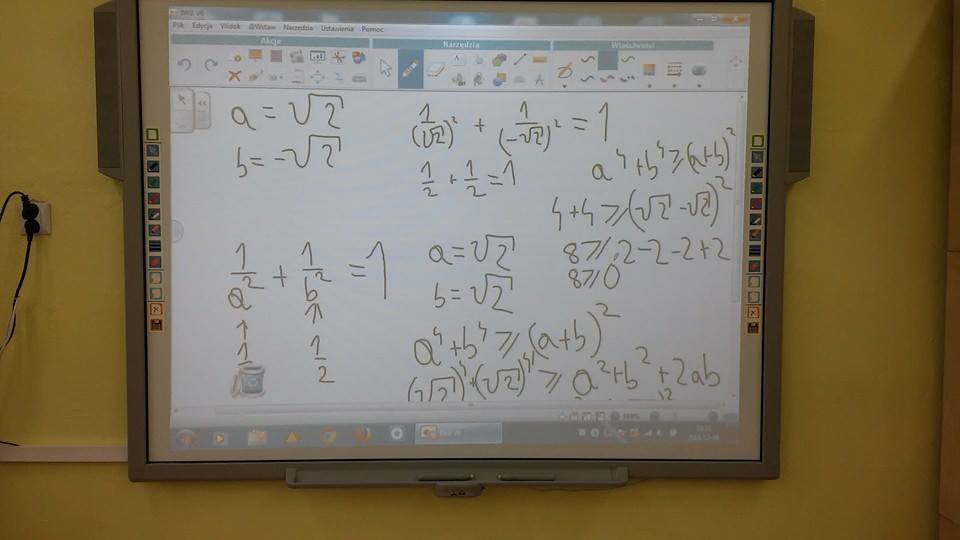 Plik Edycja Widok Wstaw Narzędzia Ustawienia Pomoc
Akcje Narzędzia Właściwości
a = √2
b = -√2
1/(√2)² + 1/(-√2)² = 1
1/2 + 1/2 = 1
a⁴ + b⁴ ≥ (a+b)²
4 + 4 ≥ (√2 - √2)²
8 ≥ 2 - 2 - 2 + 2
8 ≥ 0
1/a² + 1/b² = 1
↑ ↑
1 1/2
a = √2
b = √2
a⁴ + b⁴ ≥ (a+b)²
(√2)⁴ + (√2)⁴ ≥ a² + b² + 2ab
100%